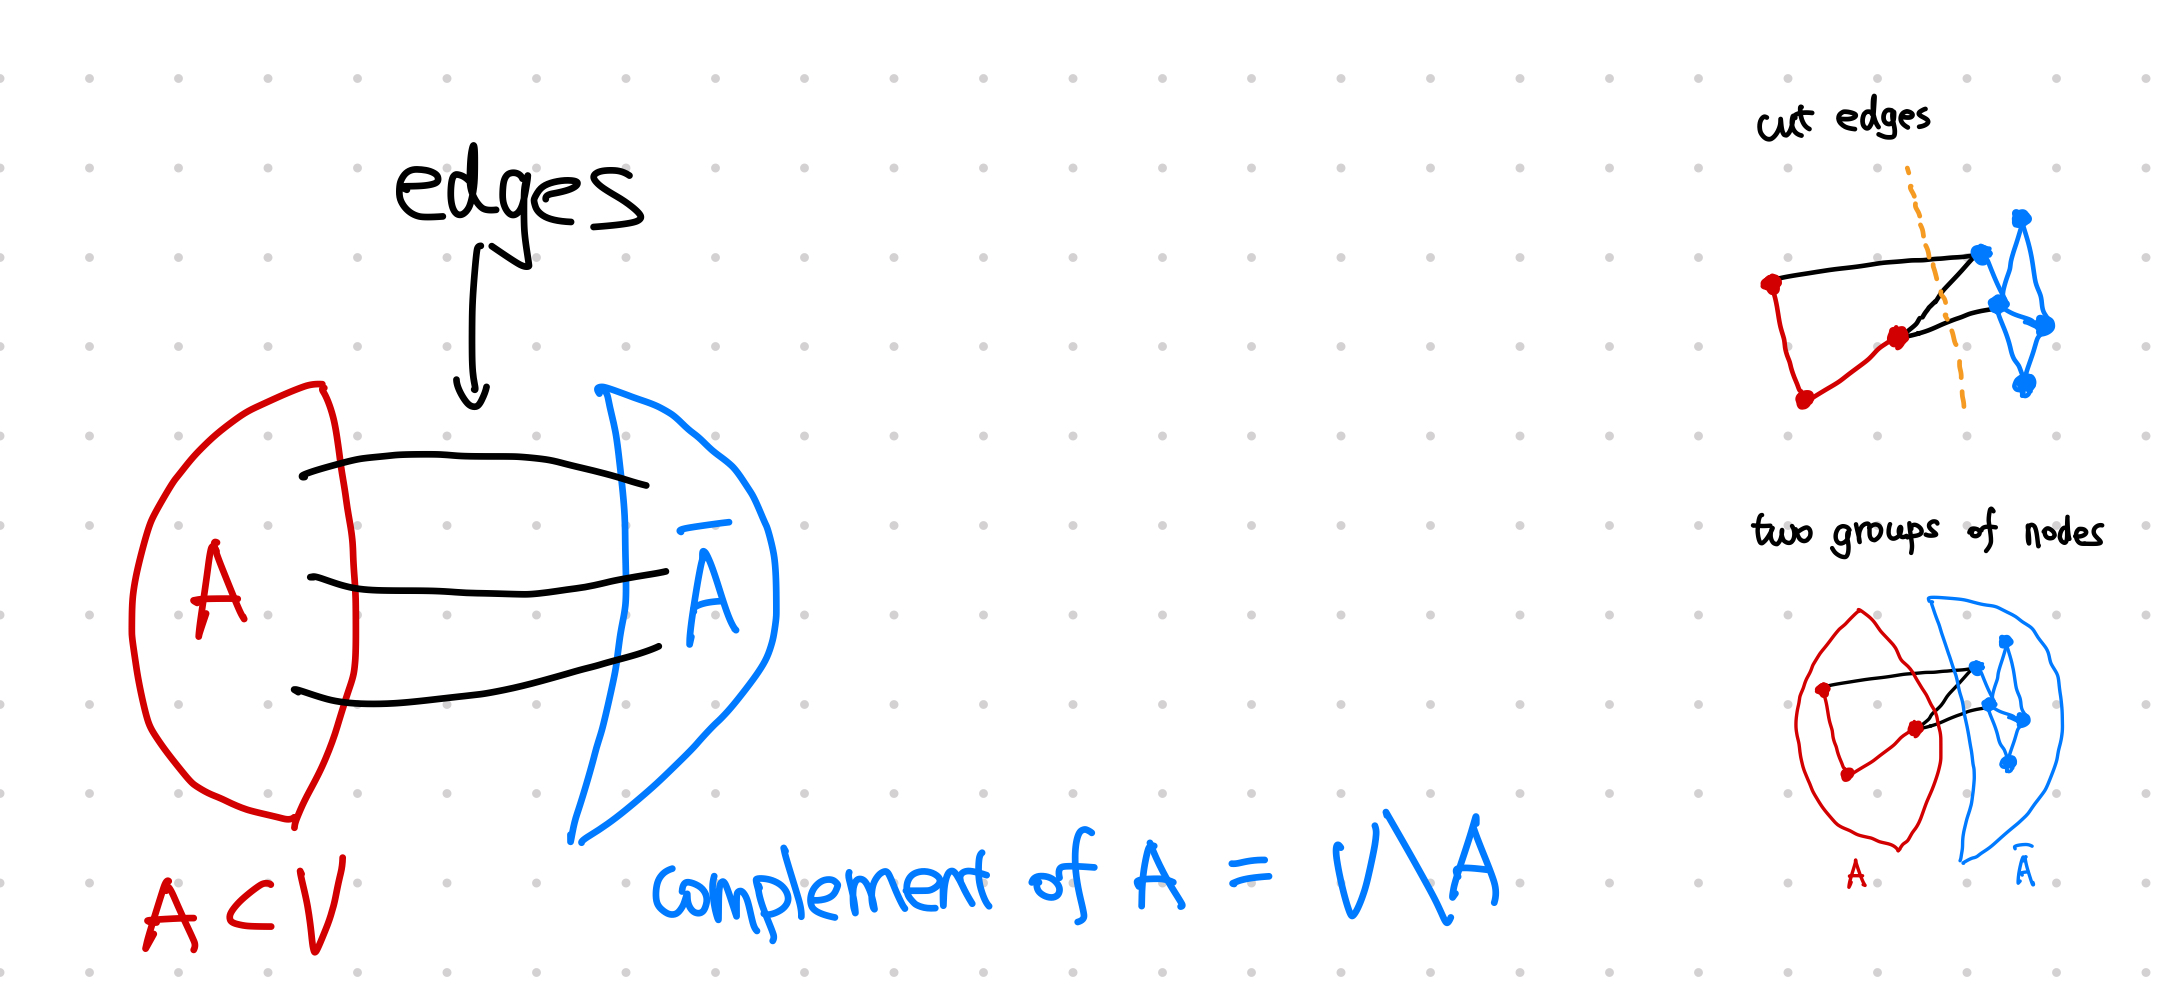 edges
A
A̅
A ⊂ V
complement of A = V\A
cut edges
two groups of nodes
A
A̅